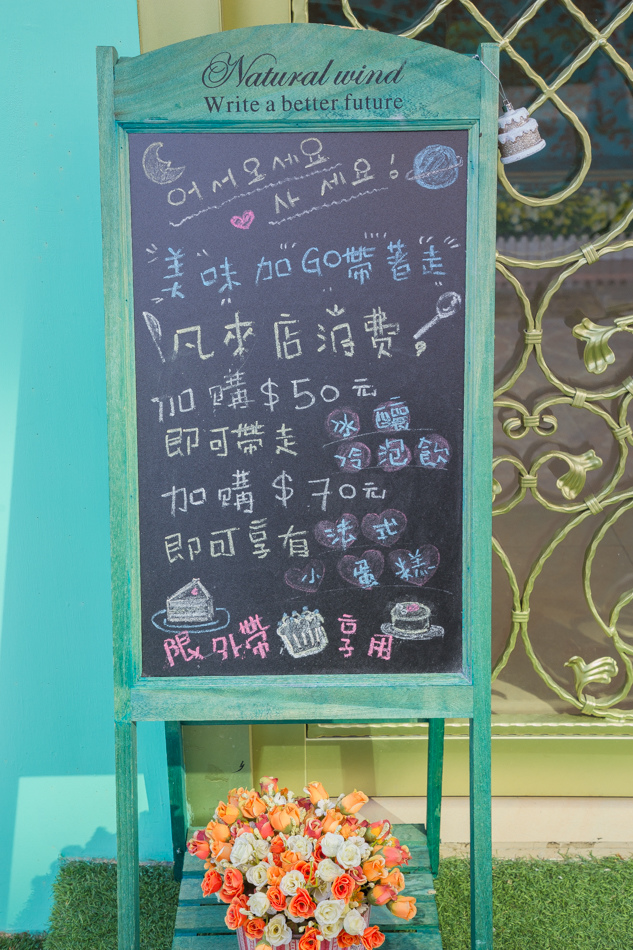 Natural wind
Write a better future
어서오세요
사세요!
美味加GO帶著走
凡來店消費,
加購$50元
即可帶走 冰釀
冷泡飲
加購$70元
即可享有 法式
小蛋糕
限外帶享用